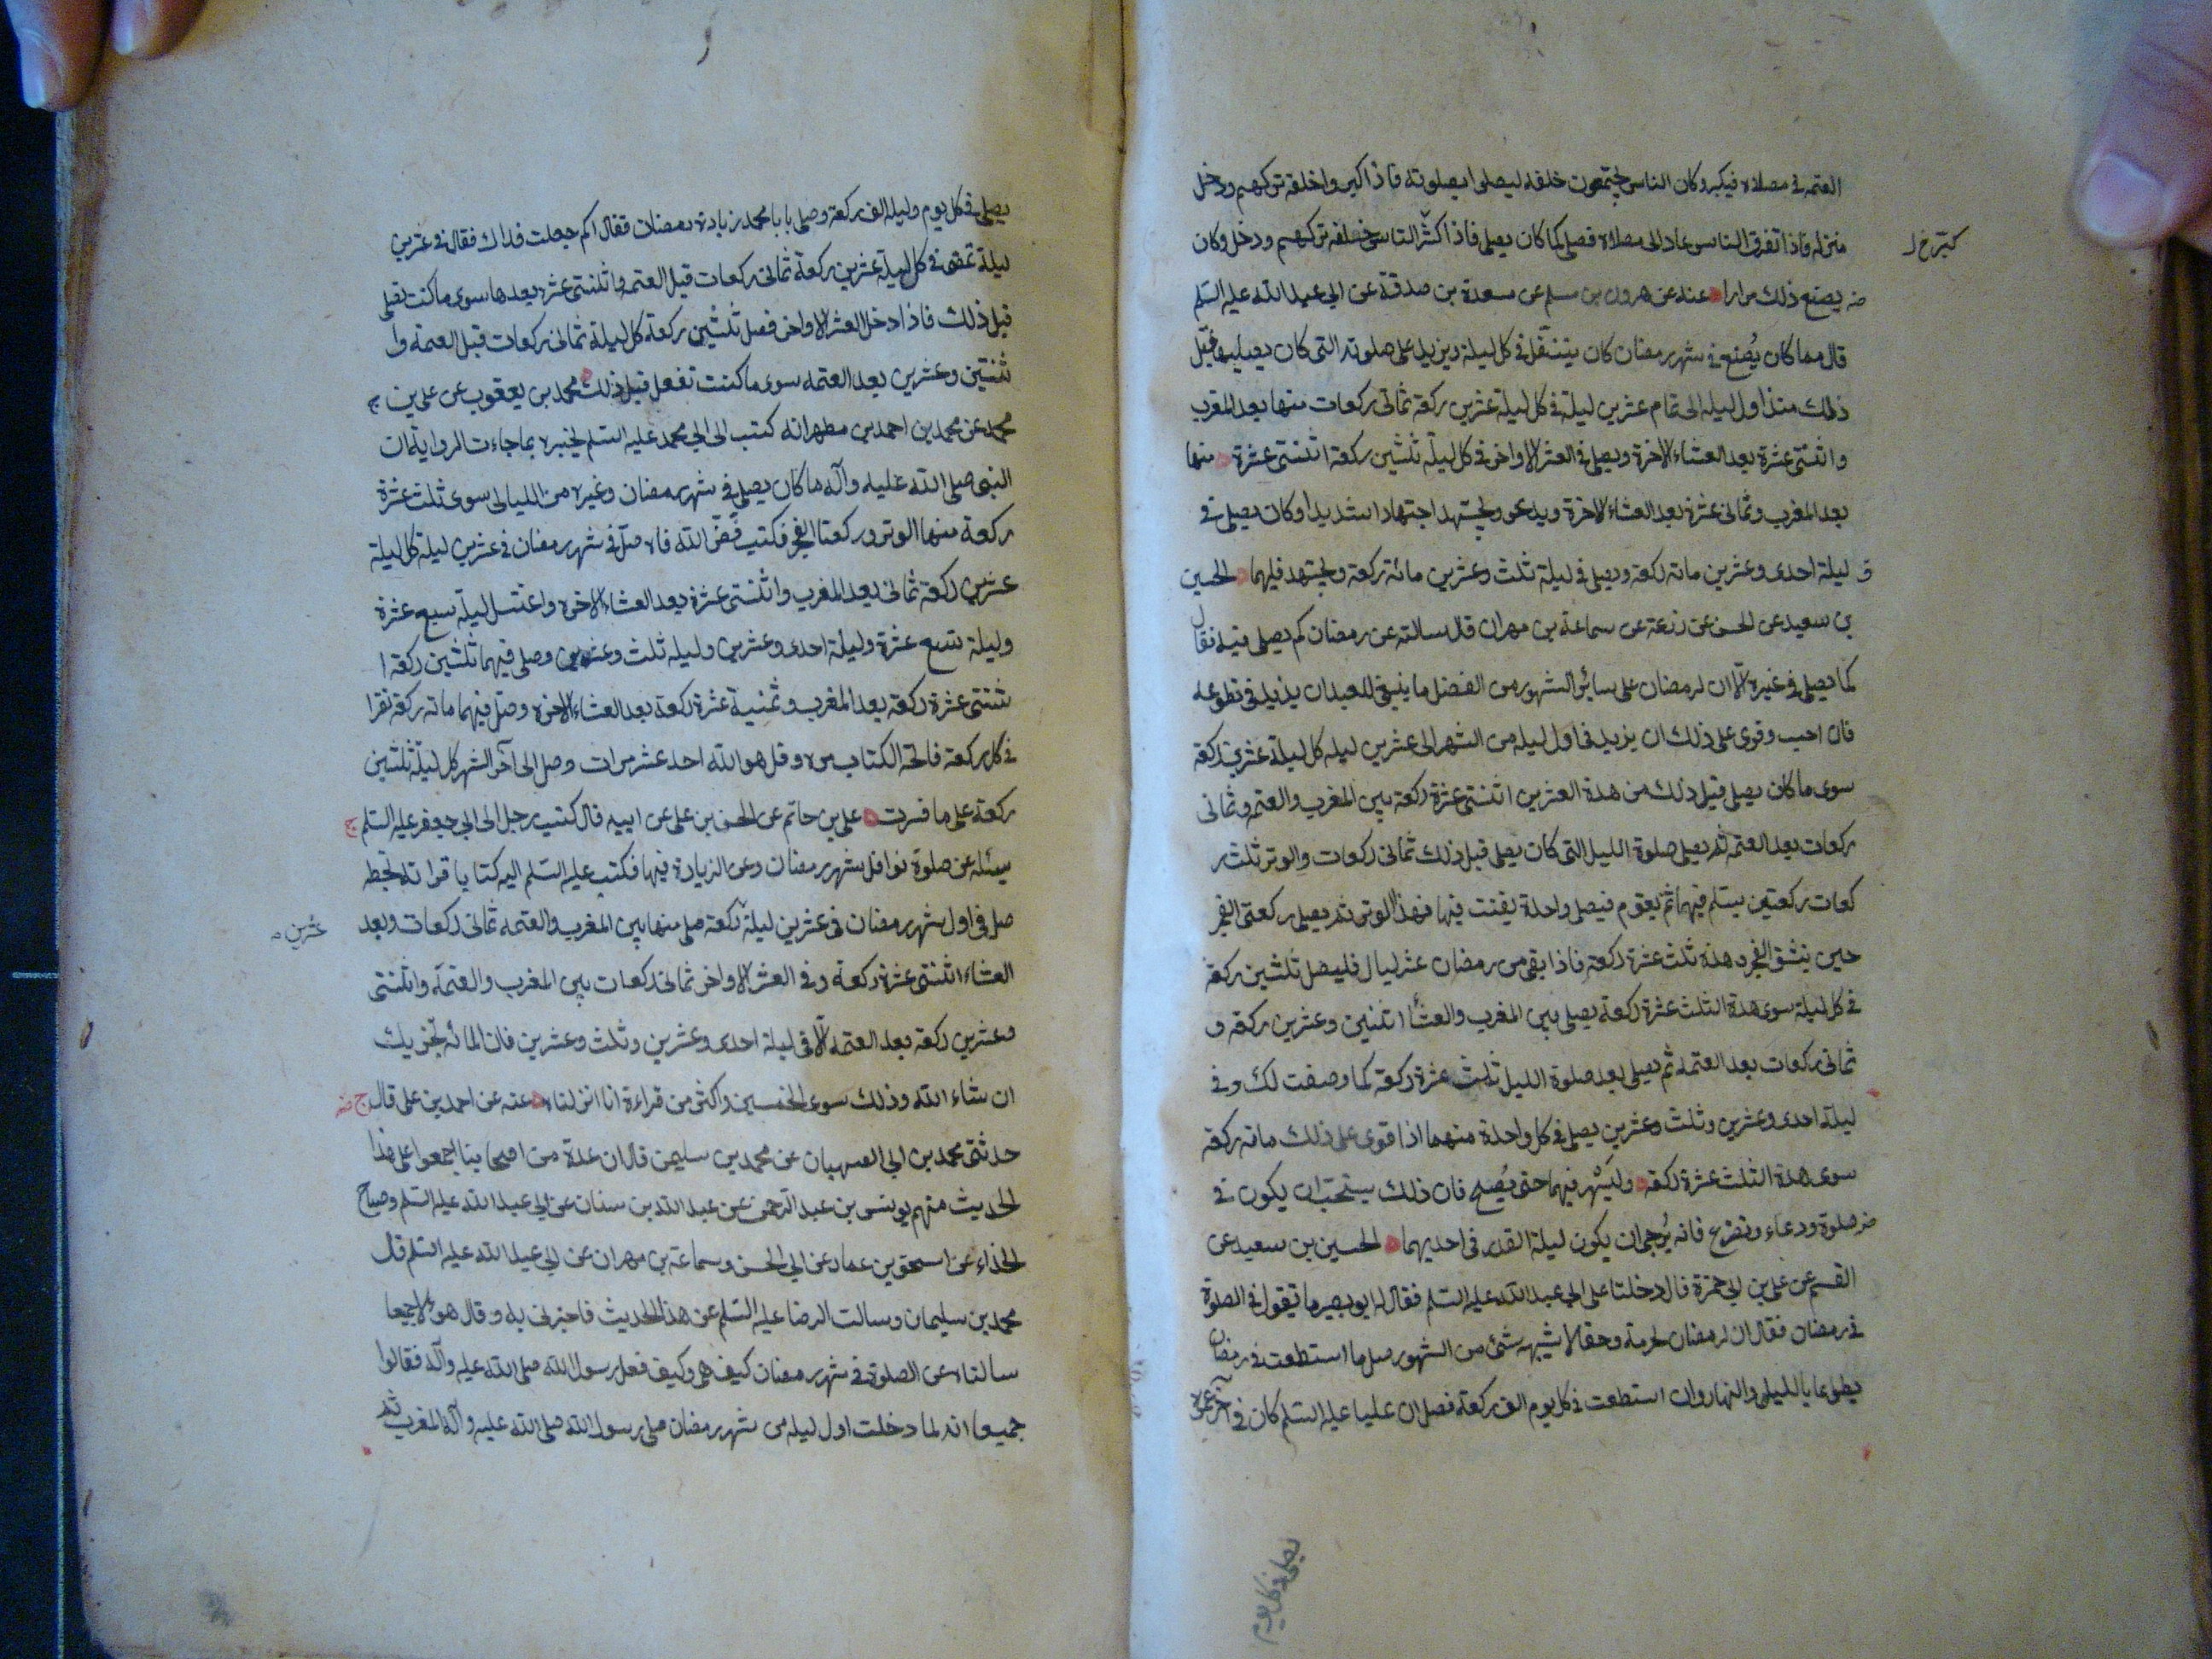 العتمه في مصلاه فيكبر وكان الناس يجتمعون خلفه ليصلوا بصلوته فاذا كبروا خلفه تركهم ودخل
منزله فاذا تفرق الناس عاد الى مصلاه فصلى كما كان يصلى فاذا كثر الناس خلفه تركهم ودخل وكان
يصنع ذلك مرارا عنه عن هرون بن مسلم عن مسعدة بن صدقة عن ابي عبد الله عليه السلم
قال مما كان يُصنع في شهر رمضان كان يتنفل في كل ليلة ويزيد على صلوته التى كان يصليها قبل
ذلك منذ اول ليله الى تمام عشرين ليلة في كل ليلة عشرين ركعة ثمانى ركعات منها بعد المغرب
واثنتى عشرة بعد العشاء الاخرة ويصلى في العشر الاواخر في كل ليلة ثلثين ركعة اثنتى عشرة منها
بعد المغرب وثمانى عشرة بعد العشاء الاخرة ويدعو ويجتهد اجتهادا شديدا وكان يصلى في
ليلة احدى وعشرين مائة ركعة ويصلى في ليلة ثلث وعشرين مائة ركعة ويجتهد فيهما الحسين
بن سعيد عن الحسن عن زرعة عن سماعة بن مهران قال سالته عن رمضان كم يصلى فيه فقال
كما يصلى في غيره الا ان لرمضان على سائر الشهور من الفضل ما ينبغى للعبد ان يزيد في تطوعه
فان احب وقوى على ذلك ان يزيد في اول ليله من الشهر الى عشرين ليله كل ليلة عشرين ركعة
سوى ما كان يصلى قبل ذلك من هذة العشرين اثنتى عشرة ركعة بين المغرب والعتمه وثمانى
ركعات بعد العتمه ثم يصلى صلوة الليل التى كان يصلى قبل ذلك ثمانى ركعات والوتر ثلث ر
كعات ركعتين يسلم فيهما ثم يقوم فيصلى واحدة يقنت فيها فهذا الوتر ثم يصلى ركعتى الفجر
حين ينشق الفجر فهذه ثلث عشرة ركعة فاذا بقى من رمضان عشر ليال فليصل ثلثين ركعة
في كل ليلة سوى هذة الثلث عشرة ركعة يصلى بين المغرب والعشاء اثنتين وعشرين ركعة و
ثمانى ركعات بعد العتمه ثم يصلى بعد صلوة الليل ثلث عشرة ركعة كما وصفت لك وفي
ليلة احدى وعشرين وثلث وعشرين يصلى في كل واحدة منهما اذا قوى على ذلك مائة ركعة
سوى هذة الثلث عشرة ركعة وليسهر فيهما حتى يُصبح فان ذلك يستحب ان يكون في
صلوة ودعاء وتضرع فانه يُرجى ان يكون ليلة القدر في احديهما الحسين بن سعيد عن
القسم عن على بن ابي حمزة قال دخلنا على ابي عبد الله عليه السلم فقال له ابو بصير ما تقول في الصلوة
في رمضان فقال ان لرمضان لحرمة وحقا لا يشبهه شئ من الشهور صل ما استطعت في رمضان
تطوعا بالليل والنهار وان استطعت في كل يوم الف ركعة فصل ان عليا عليه السلم كان في آخر عمره
يصلى في كل يوم
يصلى في كل يوم وليله الف ركعة وصلى يابا محمد زيادة رمضان فقال كم جعلت فداك فقال في عشرين
ليلة تمضى في كل ليلة عشرين ركعة ثمانى ركعات قبل العتمه واثنتى عشرة بعدها سوى ما كنت تصلى
قبل ذلك فاذا دخل العشر الاواخر فصل ثلثين ركعة كل ليلة ثمانى ركعات قبل العتمة وا
ثنتين وعشرين بعد العتمه سوى ما كنت تفعل قبل ذلك محمد بن يعقوب عن على بن
محمد عن محمد بن احمد بن مطهر انه كتب الى ابي محمد عليه السلم يخبره بما جاءت الرواية ان
النبى صلى الله عليه وآله ما كان يصلى في شهر رمضان وغيره من الليالى سوى ثلث عشرة
ركعة منها الوتر وركعتا الفجر فكتب فض الله فاه صل في شهر رمضان في عشرين ليلة كل ليلة
عشرين ركعة ثمانى بعد المغرب واثنتى عشرة بعد العشاء الاخره واغتسل ليلة سبع عشرة
وليلة تسع عشرة وليلة احدى وعشرين وليله ثلث وعشرين وصلى فيهما ثلثين ركعة ا
ثنتى عشرة ركعة بعد المغرب وثمنية عشرة ركعة بعد العشاء الاخره وصل فيهما مائة ركعة تقرا
في كل ركعة فاتحة الكتاب مرة وقل هو الله احد عشر مرات وصل الى آخر الشهر كل ليلة ثلثين
ركعة على ما فسرت على بن حاتم عن الحسن بن على عن ابيه قال كتب رجل الى ابي جعفر عليه السلم
يسئله عن صلوة نوافل شهر رمضان وعن الزيادة فيها فكتب عليه السلم اليه كتابا قراته بخطه
صل في اول شهر رمضان في عشرين ليلة ركعة صلى منها بين المغرب والعتمه ثمانى ركعات وبعد
عشرين
العشاء اثنتى عشرة ركعة وفي العشر الاواخر ثمانى ركعات بين المغرب والعتمة واثنتى
وعشرين ركعة بعد العتمه الا في ليلة احدى وعشرين وثلث وعشرين فان المائة تجزيك
ان شاء الله وذلك سوى الخمسين واكثر من قراءة انا انزلناه عنه عن احمد بن على قال
حدثنى محمد بن ابي الصهبان عن محمد بن سليمن قال ان عدة من اصحابنا اجمعوا على هذا
الحديث منهم يونس بن عبد الرحمن عن عبد الله بن سنان عن ابي عبد الله عليه السلم وصباح
الحذاء عن اسحق بن عمار عن ابي الحسن وسماعة بن مهران عن ابي عبد الله عليه السلم قال
محمد بن سليمان وسالت الرضا عليه السلم عن هذا الحديث فاخبرنى به وقال هؤلاء جميعا
سالناه عن الصلوة في شهر رمضان كيف هى وكيف فعل رسول الله صلى الله عليه وآله فقالوا
جميعا انه لما دخلت اول ليله من شهر رمضان صلى رسول الله صلى الله عليه وآله المغرب ثم